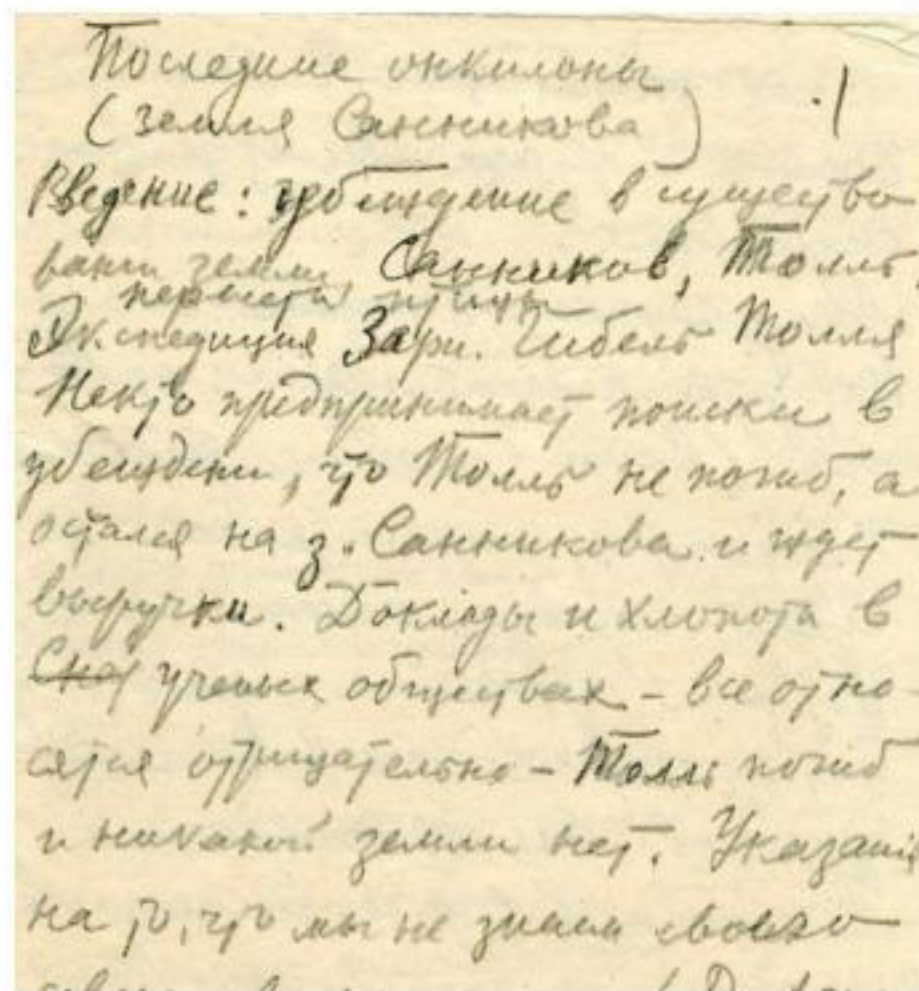 Последние онкилоны
(Земля Санникова)
1
Введение: убеждение в существо
вании земли, Санников, Толль,
перелеты птиц
Экспедиция Зари. Гибель Толля
Некто предпринимает поиски в
убеждении, что Толль не погиб, а
остался на з. Санникова и ждет
выручки. Доклады и хлопоты в
ученых обществах – все отно
сятся отрицательно – Толль погиб
и никакой земли нет. Указания
на то, что мы не знаем своего